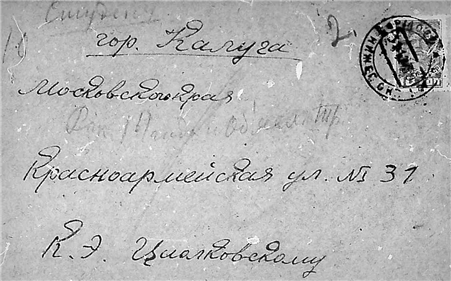 Студент
2.
гор. Калуга
Московского края
Красноармейская ул. № 31
К. Э. Циолковскому